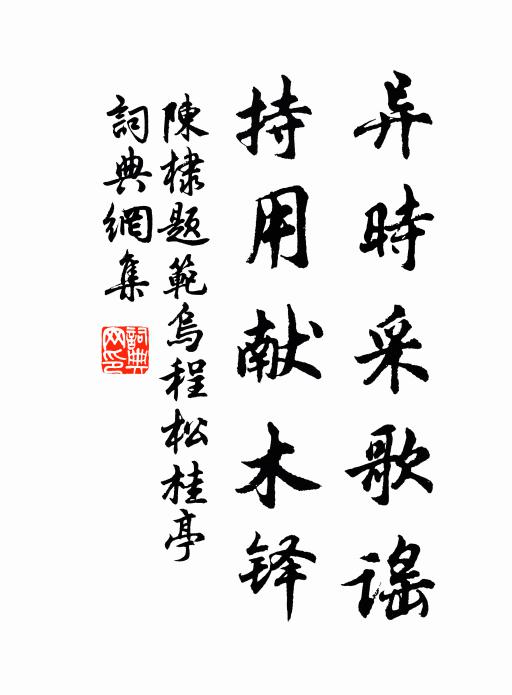 异時采歌謠
持用献木铎
陳棣题範烏程松桂亭
詞典網集
詞典网印